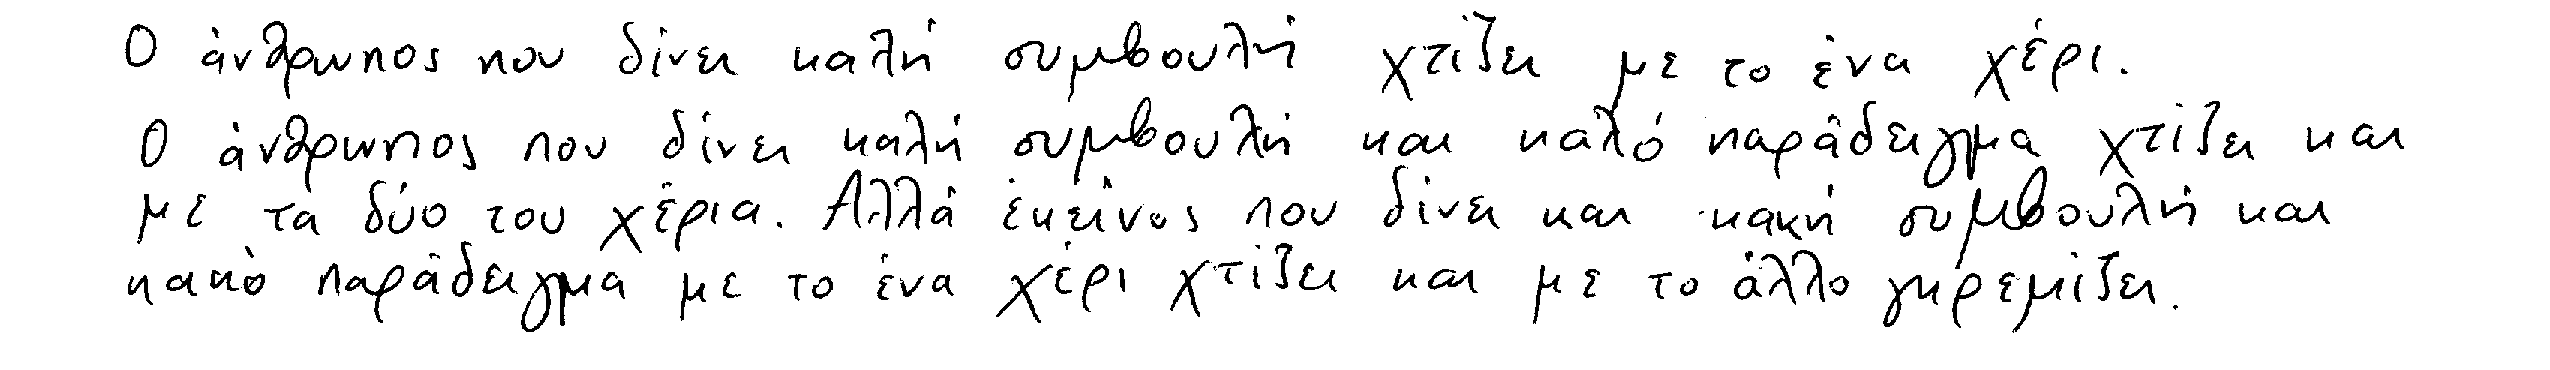 Ο άνθρωπος που δίνει καλή συμβουλή χτίζει με το ένα χέρι.
Ο άνθρωπος που δίνει καλή συμβουλή και καλό παράδειγμα χτίζει και
με τα δύο του χέρια. Αλλά εκείνος που δίνει και κακή συμβουλή και
κακό παράδειγμα με το ένα χέρι χτίζει και με το άλλο γκρεμίζει.